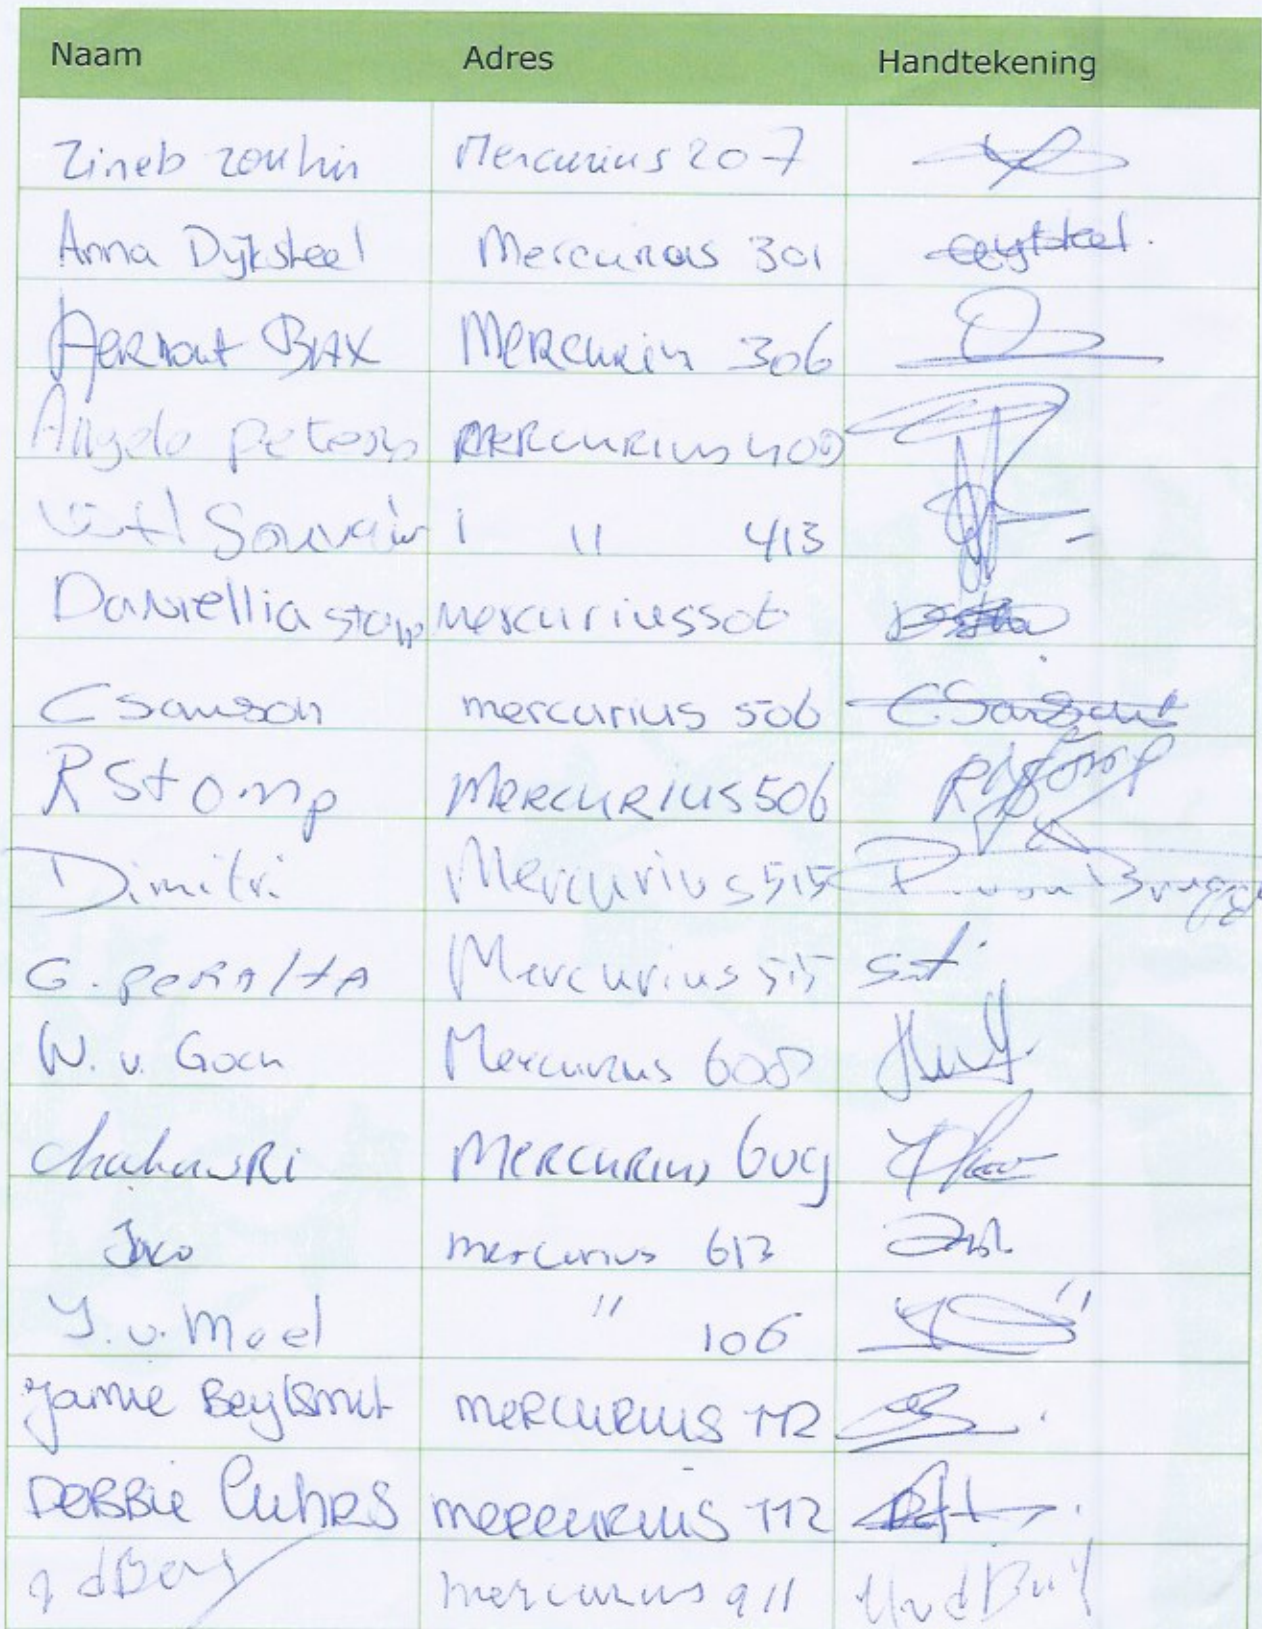 Naam Adres Handtekening
Zineb zouhin Mercurius 207
Anna Dijksteel Mercurius 301
Aernout BAX MERCURIUS 306
Angelo peters MERCURIUS 409
" 413
Daniellia stomp mercurius 506
C Samson mercurius 506 C Samson
R Stomp MERCURIUS 506 R Stomp
Dimitri Mercurius 515 D. van Brugge
G. PERAltA Mercurius 515
W. v. Goch Mercurius 608
MERCURIUS 609
Joko mercurius 613
J. v. Moel " 106
Jamie Beylsmit MERCURIUS 112
DEBBIE Cuhrs MERCURIUS 112
mercurius 911